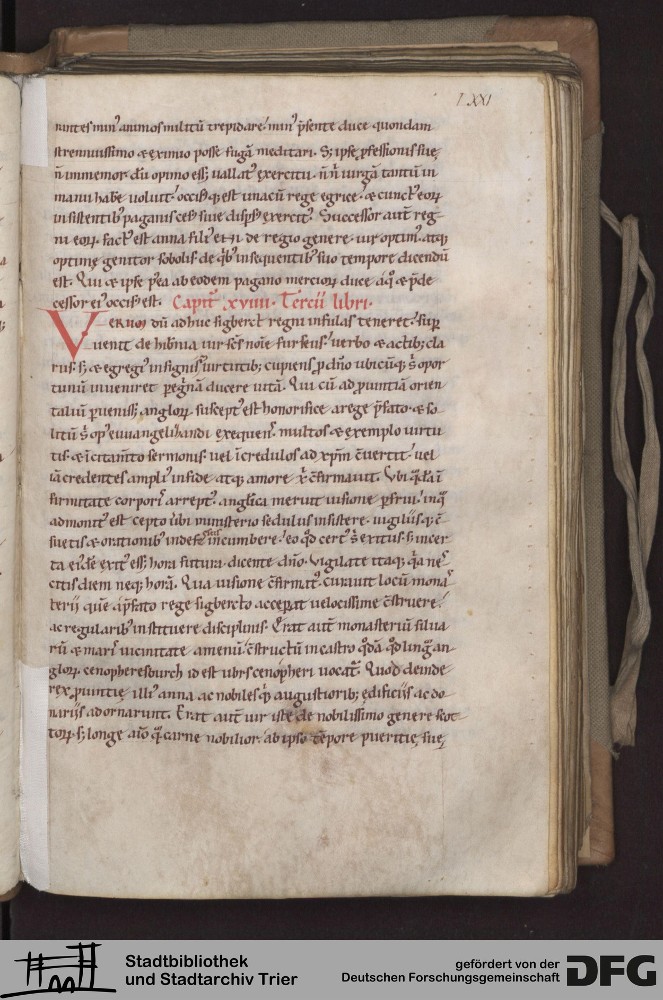 LXXI
nintes min᷒ animos militū trepidare · min᷒ p̄sente duce quondam
strenuissimo & eximio posse fugā meditari. S; ipse ꝓfessionis suę
ñ immemor dū opimo eēt uallat᷒ exercitu · ñ n̄ uirgā tantū in
manu habe uoluit · occisꝰ q; est unacū rege egrice · & cunct᷒ eoꝝ
insistentibꝰ paganis cesꝰ siue dispsꝰ exercitꝰ. Successor aut̄ reg
ni eoꝝ factꝰ est anna filiꝰ eni de regio genere · uir optimꝰ atq;
optimę genitor sobolis · de qͥbꝰ insequentibꝰ suo tempore dicendū
est. Qui & ipse p̄ea ab eodem pagano mercioꝝ duce · a q̊ & p̄de
cessor eiꝰ occisꝰ est. Capitꝰ xviiii · Tercii libri ·
VERUM dū adhuc sigberct regni infulas teneret · supͥ
uenit de hibnia uir scs noīe furseus · uerbo & actib; cla
rus · s; & egregiꝰ insignisꝰ uirtutib; cupiens ꝓ dn̄o ubicūq; s̄ opor
tunū inueniret peregͥnā ducere uitā. Qui cū ad ꝓuintiā orien
taliū ꝑueniss; angloꝝ · susceptꝰ est honorifice a rege p̄fato · & so
litū s̄ opꝰ euuangelizandi exequenſ · multos & exemplo uirtu
tis · & ī citam̄to sermonis · uel īcredulos ad xp̄m c̄uertit · uel
iā credentes ampliꝰ in fide atq; amore x̄ c̄firmauit. Ubi q̇dā ī
firmitate corporiſ arreptꝰ · anglica meruit uisione ꝑfrui · in q̇
admonitꝰ est cepto ūbi ministerio sedulus insistere · uigiliis q; c̄
suetis & orationibꝰ indefessus incumbere · eo qd̄ certꝰ s̄ exitus · s; incer
ta eiꝰdē exitꝰ ess; hora futura · dicente dn̄o · Vigilate itaq; qͥa neſ
citis diem neq; horā. Qua uisione c̄firmatꝰ · curauit locū monaſ
terij quē a p̄fato rege sigbercto acceꝑat uelocissime c̄struere ·
ac regularibꝰ instituere disciplinis. Erat aut̄ monasteriū silua
rū & mariſ uicinitate amenū · c̄structū in castro qͦdā qd̄ lingͣ an
gloꝝ cenopheresburch id est urbs cenopheri uocatꝰ. Quod deinde
rex ꝓuintię illiꝰ anna ac nobiles qͥq; augustiorib; edificiis ac do
nariis adornarunt. Erat aut̄ uir iste de nobilissimo genere scot
toꝝ · s; longe aīo qͣ carne nobilior · ab ipso tēpore pueritię suę
Stadtbibliothek
und Stadtarchiv Trier
gefördert von der
Deutschen Forschungsgemeinschaft
DFG